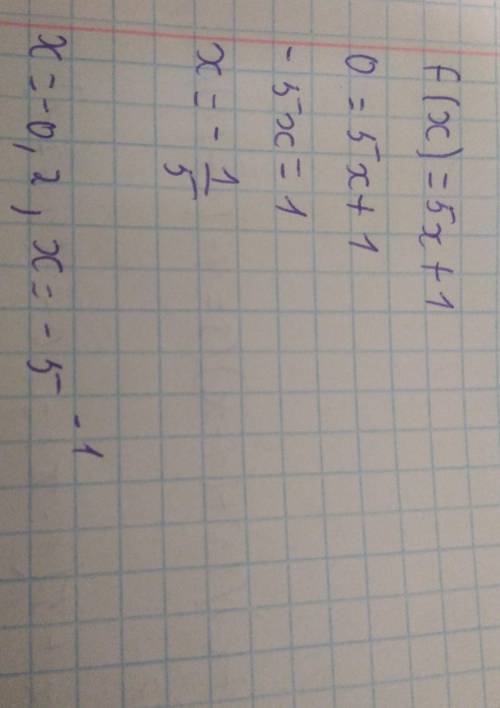 f(x) = 5x + 1
0 = 5x + 1
- 5x = 1
x = - 1/5
x = -0,2, x = -5⁻¹